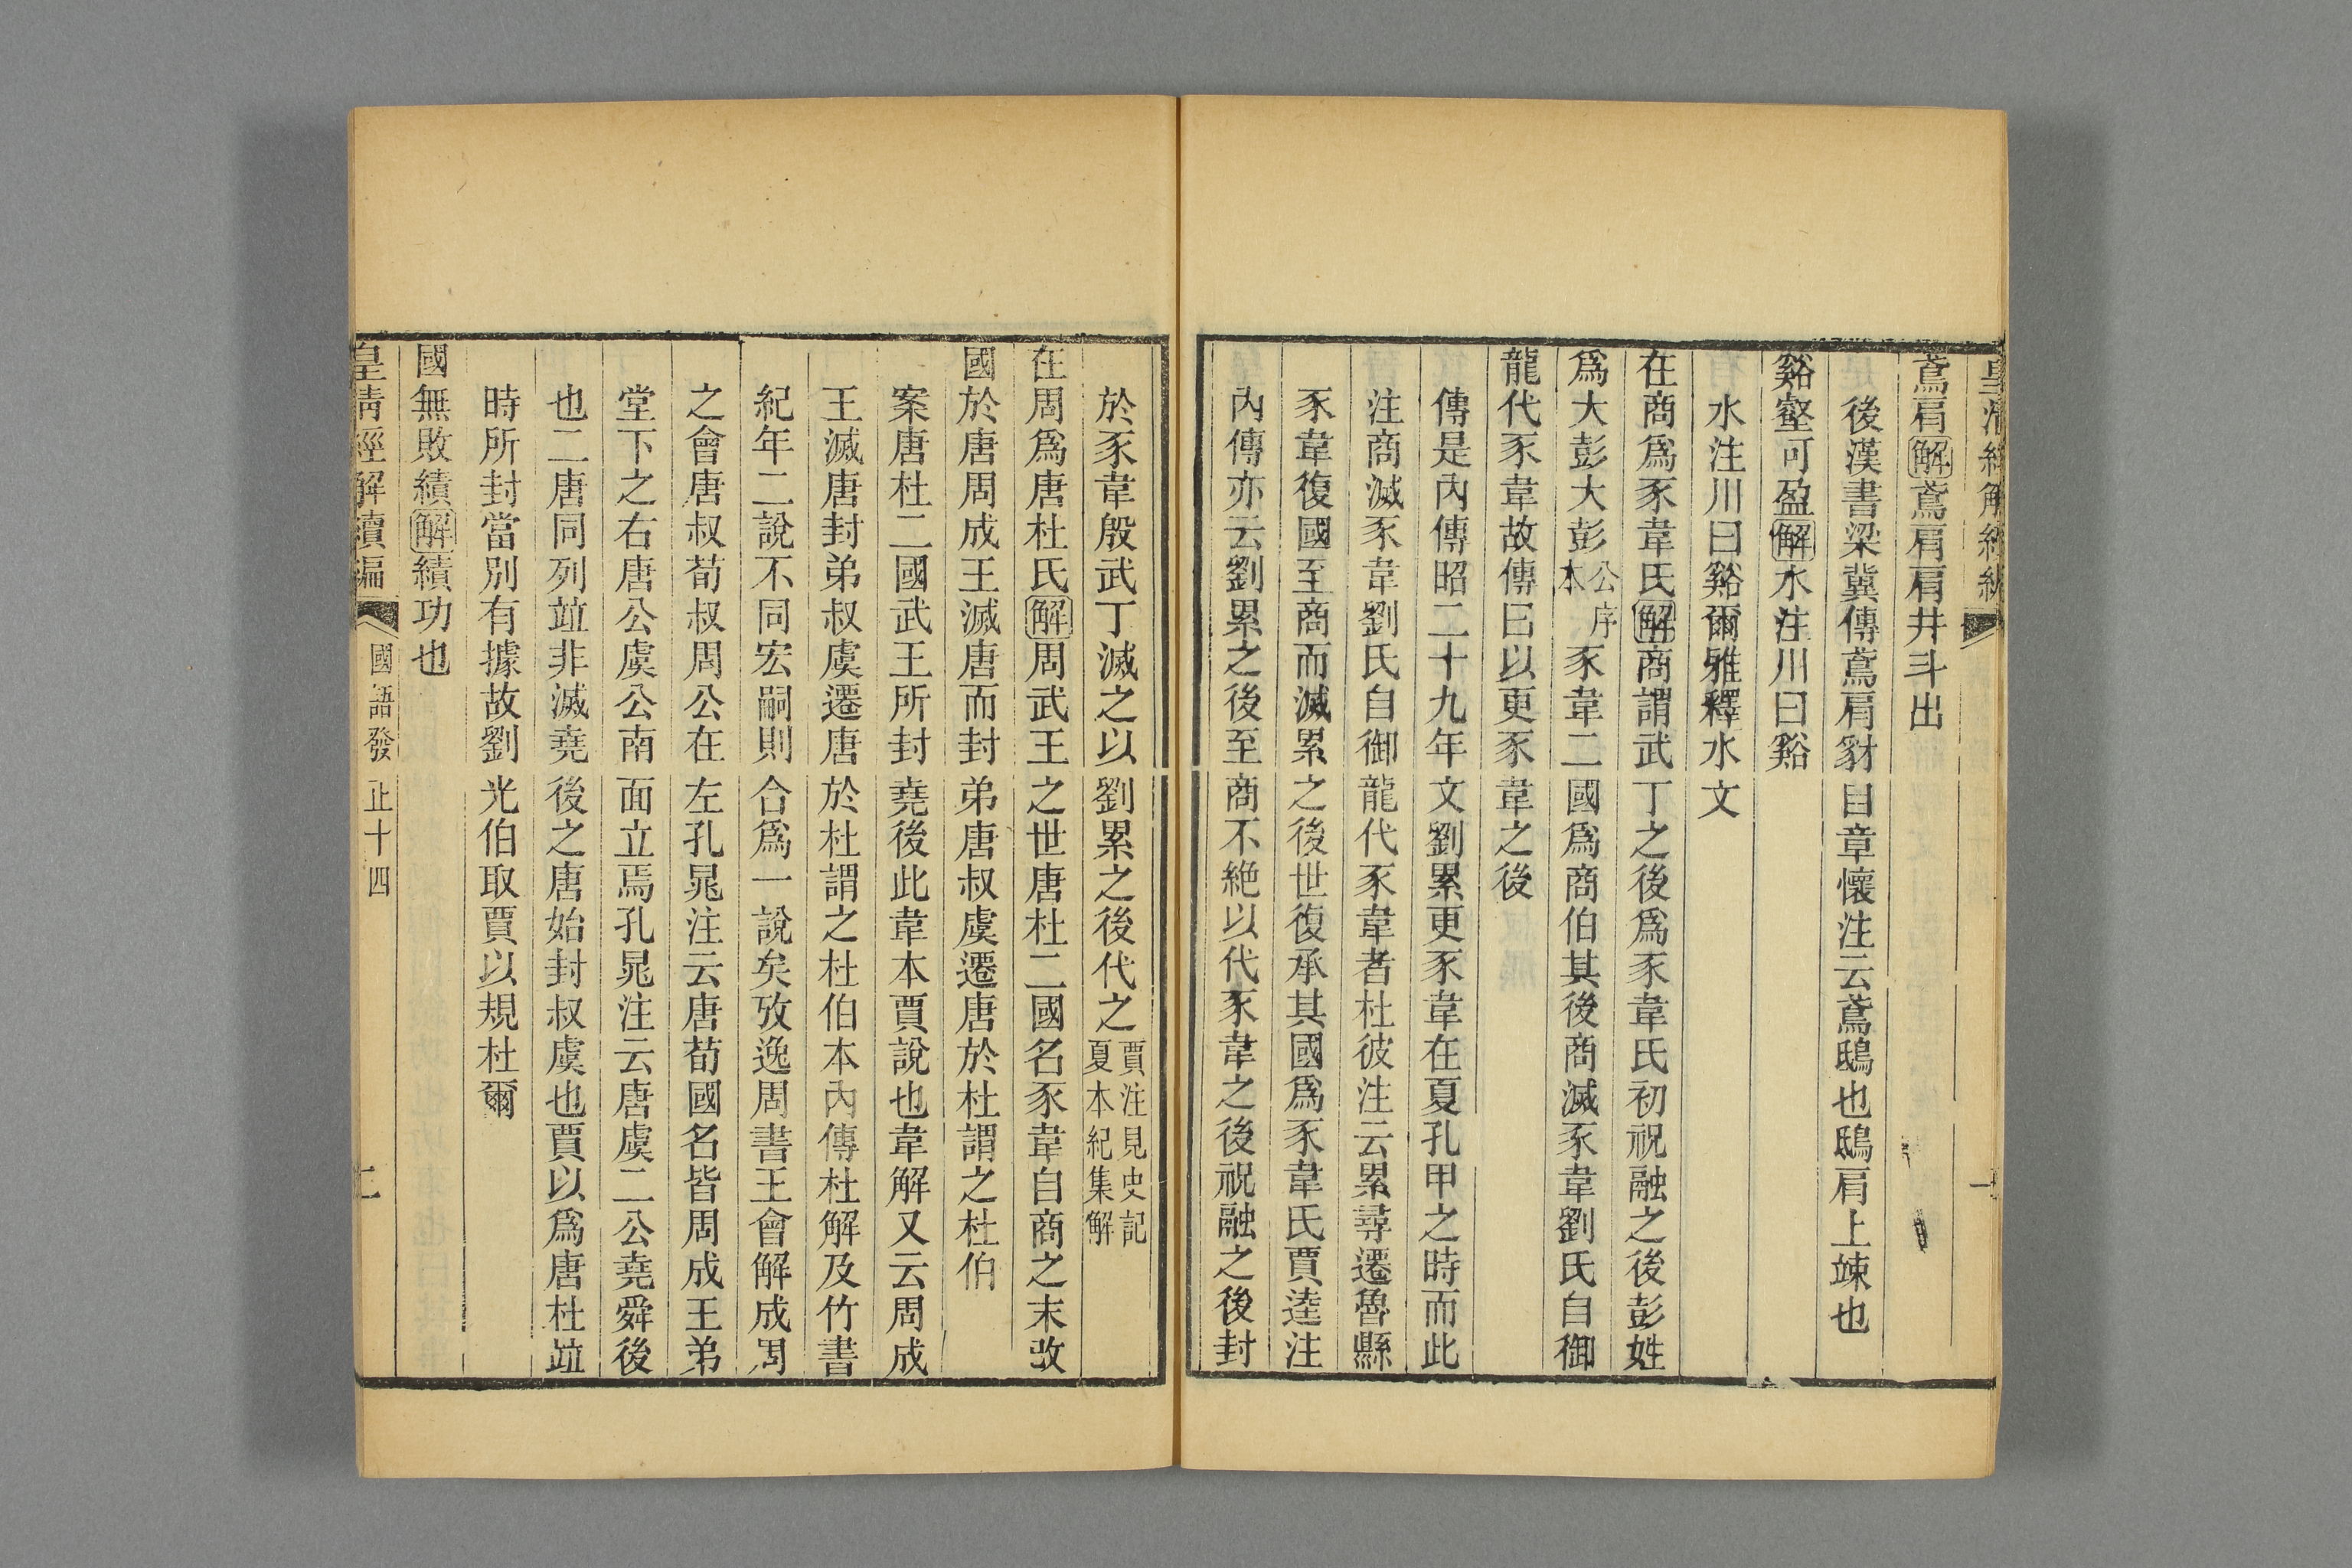 鳶肩解鳶肩肩井斗出
後漢書梁冀傳鳶肩豺目章懷注云鳶鴟也鴟肩上竦也
谿壑可盈解水注川曰谿
水注川曰谿爾雅釋水文
在商爲豕韋氏解商謂武丁之後爲豕韋氏初祝融之後彭姓
爲大彭大彭公序本豕韋二國爲商伯其後商滅豕韋劉氏自御
龍代豕韋故傳曰以更豕韋之後
傳是內傳昭二十九年文劉累更豕韋在夏孔甲之時而此
注商滅豕韋劉氏自御龍代豕韋者杜彼注云累尋遷魯縣
豕韋復國至商而滅累之後世復承其國爲豕韋氏賈逵注
內傳亦云劉累之後至商不絶以代豕韋之後祝融之後封
於豕韋殷武丁滅之以劉累之後代之賈注見史記夏本紀集解
在周爲唐杜氏解周武王之世唐杜二國名豕韋自商之末改
國於唐周成王滅唐而封弟唐叔虞遷唐於杜謂之杜伯
案唐杜二國武王所封堯後此韋本賈說也韋解又云周成
王滅唐封弟叔虞遷唐於杜謂之杜伯本內傳杜解及竹書
紀年二說不同宏嗣則合爲一說矣攷逸周書王會解成周
之會唐叔荀叔周公在左孔晁注云唐荀國名皆周成王弟
堂下之右唐公虞公南面立焉孔晁注云唐虞二公堯舜後
也二唐同列竝非滅堯後之唐始封叔虞也賈以爲唐杜竝
時所封當別有據故劉光伯取賈以規杜爾
國無敗績解績功也
皇清經解續編
國語發
止十四
二